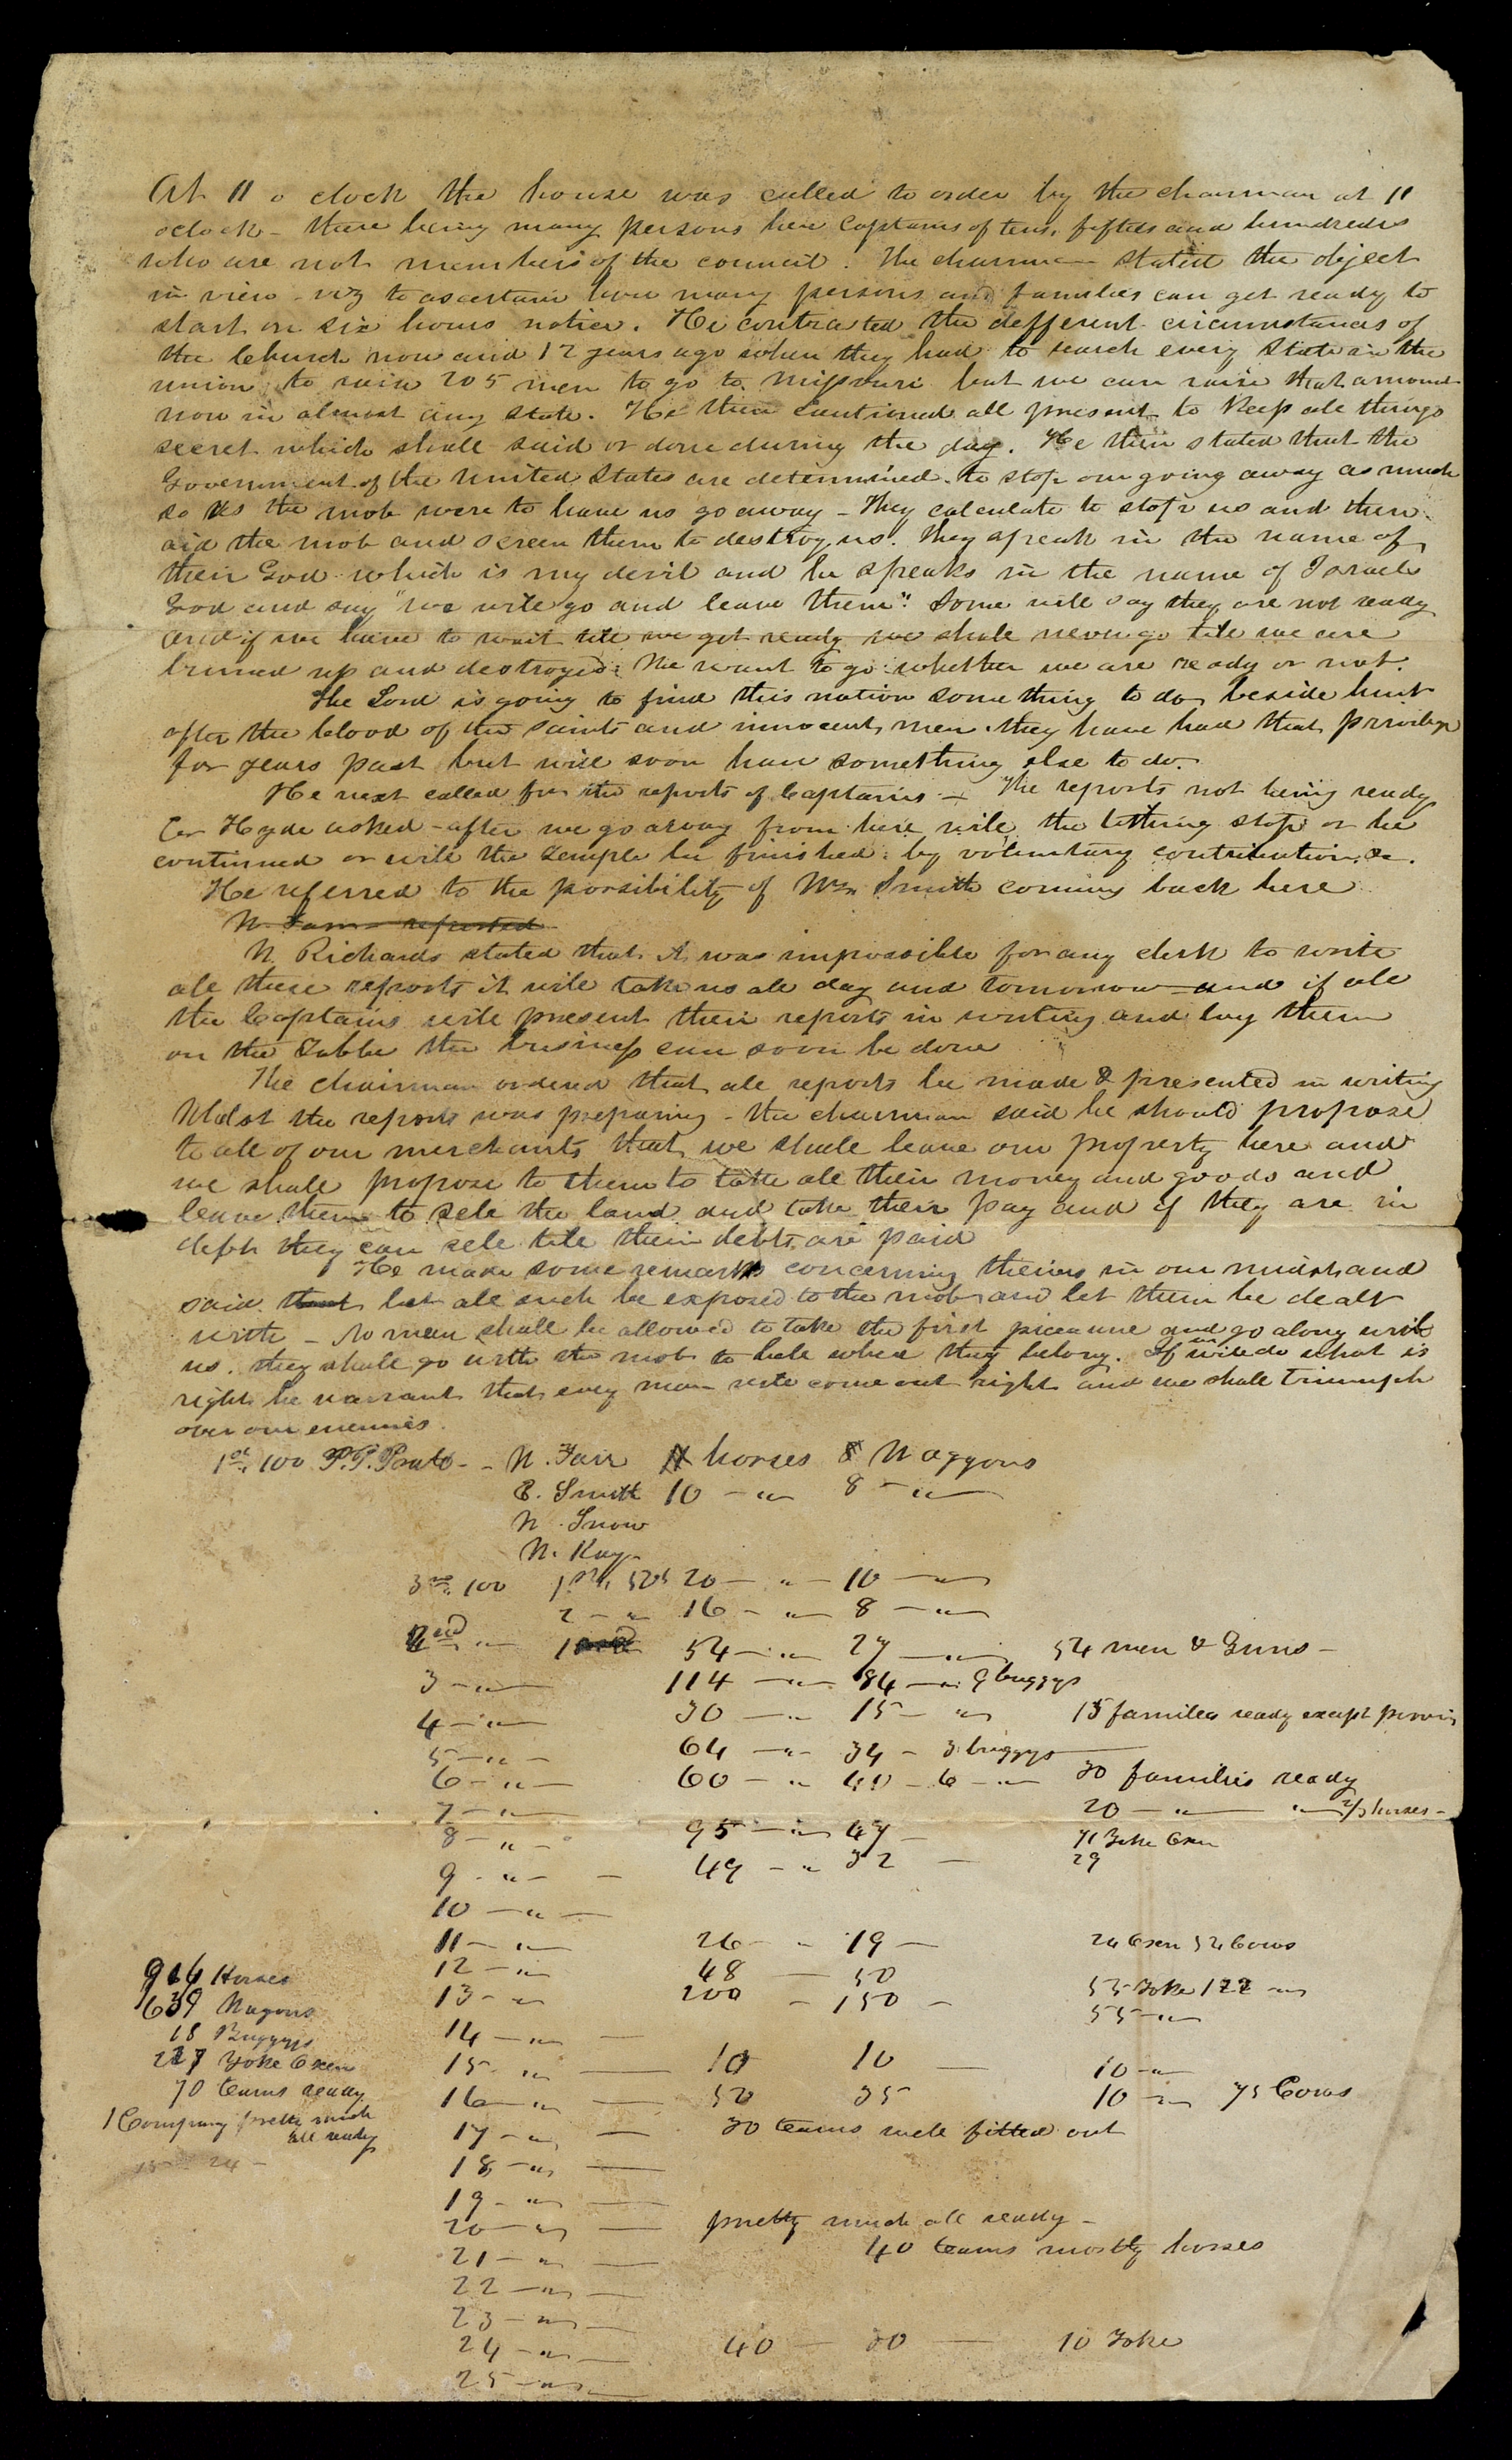 At 11 o clock the house was called to order by the chairman at 11
oclock - there being many persons here Captains of tens, fifties and hundreds
who are not members of the council. The chairman stated the object
in view - viz to ascertain how many persons and families can get ready to
start on six hours notice. He contrasted the defferent circumstances of
the Church now and 12 years ago when they had to search every State in the
union to raise 205 men to go to Missouri but we can raise that amount
now in almost any state. He then cautioned all present to keep all things
secret which shall said or done during the day. He then stated that the
Government of the United States are determined to stop our going away as much
so as the mob were to have us go away - They calculate to stop us and then
aid the mob and screen them to destroy us. They speak in the name of
their God which is my devil and he speaks in the name of Israels
God and say "we will go and leave them". Some will say they are not ready
and if we have to wait till we get ready we shall never go till we are
burned up and destroyed. We want to go whether we are ready or not.
The Lord is going to find this nation something to do, beside hunt
after the blood of the saints and innocent men. they have had that privilege
for years past but will soon have something else to do.
He next called for the reports of Captains - The reports not being ready
Er Hyde asked - after we go away from here will the tithing stop or be
continued or will the temple be finished by voluntary contribution &c.
He referred to the possibility of Wm Smith coming back here
W. Richards stated that it was impossible for any clerk to write
all these reports it will take us all day and tomorrow and if all
the Captains will present their reports in writing and lay them
on the Table the business can soon be done
The chairman ordered that all reports be made & presented in writing
Whilst the reports was preparing - the chairman said he should propose
to all of our merchants that we shall leave our property here and
we shall propose to them to take all their money and goods and
leave them to sell the land and take their pay and if they are in
debt they can sell till their debts are paid
He made some remarks concerning theives in our midst and
said that let all such be exposed to the mob and let them be dealt
with - No man shall be allowed to take the first piceaune and go along with
us. they shall go with the mob to hell where they belong. If we will do what is
right he warrant that every man will come out right and we shall triumph
over our enemies.
1st 100 P.P. Pratt - - W. Fair 11 horses 8 Waggons
E. Smith 10 - " 8 - "
W. Snow
W. Kay
3rd 100 1st 50s 20 - " - 10 - "
2 - " 16 - " - 8 - "
2nd " - 1 54 - " - 27 - " - 54 men & Guns -
3 - " 114 - " - 84 - " 9 buggys
4 - " 30 - " 15 - " 15 families ready except
5 - " - 64 - " 34 - 3 buggys
6 - " 60 - " 40 - 6 - " 30 families ready
7 - " 20 - " - " 2/3 horses -
8 - " - 95 - " 47 - 71 Yoke Oxen
9 - " - - 49 - " 32 - 29
10 - " -
11 - " 26 - " 19 - 24 Oxen 52 Cows
12 - " 48 - 50
13 - " 200 - 150 - 55 Yoke 122 "
14 - " - 55 - "
15 - " - 10 10 - 10 - "
16 - " - 52 35 10 - " 75 Cows
17 - " - 30 teams well fitted out
18 - " -
19 - " -
20 - " - pretty much all ready -
21 - " - 40 teams mostly horses
22 - " -
23 - " -
24 - " - 40 - 20 - 10 Yoke
25 - " -
916 Horses
639 Wagons
18 Buggys
227 Yoke Oxen
70 teams ready
1 Company pretty much
all ready